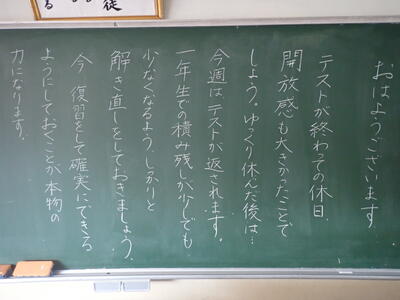 徒
る
おはようございます
テストが終わっての休日
開放感も大きかったことで
しょう。ゆっくり休んだ後は…
今週はテストが返されます。
一年生での積み残しが少しでも
少なくなるよう、しっかりと
解き直しをしておきましょう。
今 復習をして確実にできる
ようにしておくことが本物の
力になります。